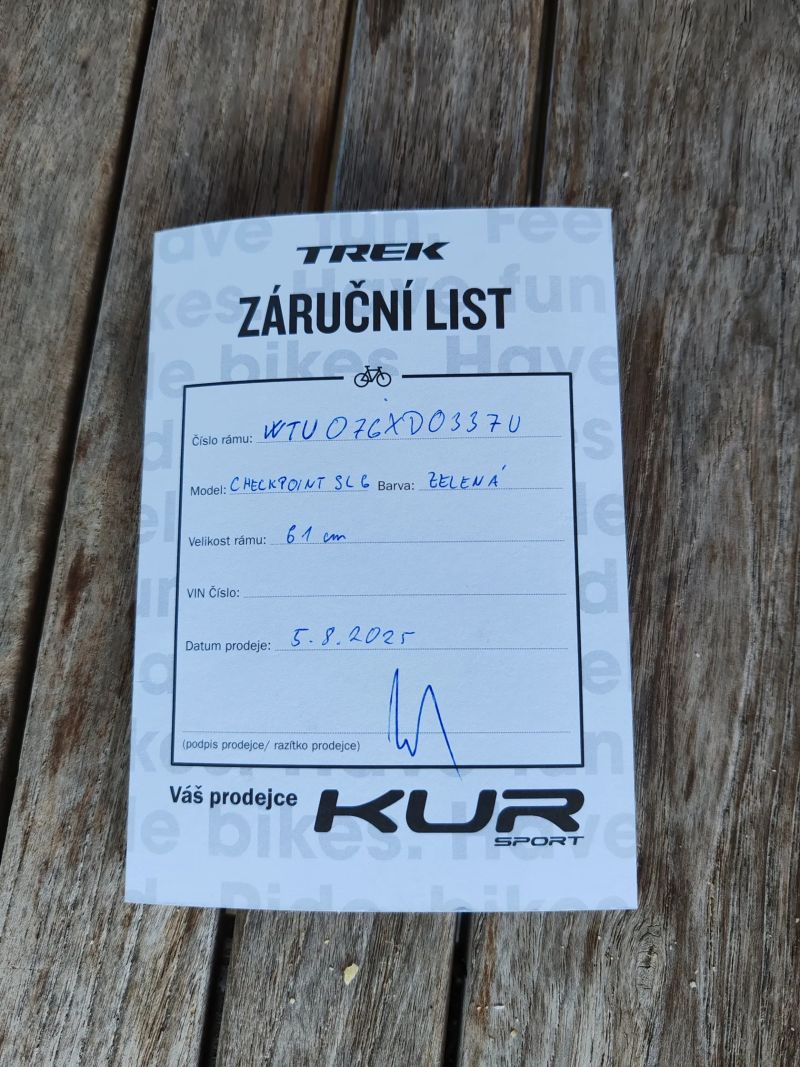 TREK
ZÁRUČNÍ LIST
Číslo rámu: WTU076XD0337U
Model: CHECKPOINT SL6 Barva: ZELENÁ
Velikost rámu: 61 cm
VIN Číslo:
Datum prodeje: 5.8.2025
(podpis prodejce/ razítko prodejce)
Váš prodejce KUR
SPORT